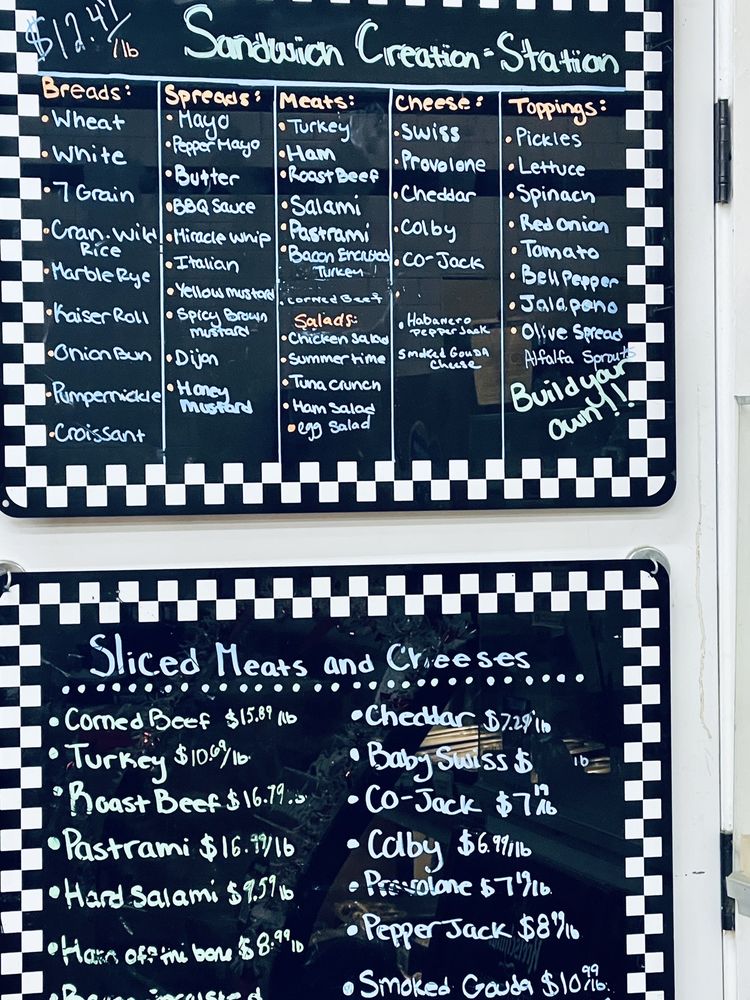 $12.47/lb
Sandwich Creation-Station
Breads:
• Wheat
• White
• 7 Grain
• Cran. Wild
Rice
• Marble Rye
• Kaiser Roll
• Onion Bun
• Pumpernickle
• Croissant
Spreads:
• Mayo
• Pepper Mayo
• Butter
• BBQ Sauce
• Miracle Whip
• Italian
• Yellow Mustard
• Spicy Brown
Mustard
• Dijon
• Honey
Mustard
Meats:
• Turkey
• Ham
• Roast Beef
• Salami
• Pastrami
• Bacon Encrusted
Turkey
• Corned Beef
Salads:
• Chicken Salad
• Summertime
• Tuna Crunch
• Ham Salad
• egg Salad
Cheese:
• Swiss
• Provolone
• Cheddar
• Colby
• CO-Jack
•
• Habanero
Pepper Jack
Smoked Gouda
Cheese
Toppings:
• Pickles
• Lettuce
• Spinach
• Red Onion
• Tomato
• Bell Pepper
• Jalapeno
• Olive Spread
Alfalfa Sprouts
Build your
own!!
Sliced Meats and Cheeses
• Corned Beef $15.89/lb
• Turkey $10.69/lb
• Roast Beef $16.79
• Pastrami $16.99/lb
• Hard Salami $9.59 lb
• Ham off the bone $8.99 lb
• Cheddar $7.29/lb
• Baby Swiss $ lb
• CO-Jack $7.19/lb
• Colby $6.99/lb
• Provolone $7.19/lb.
• Pepper Jack $8.19/lb
• Smoked Gouda $10.99/lb.